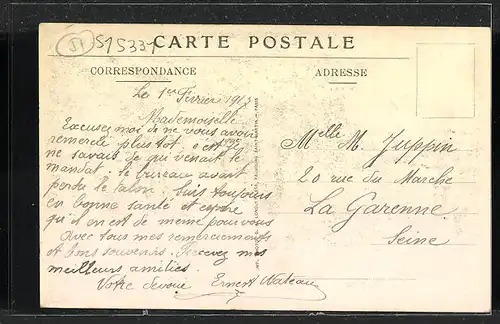 51 S15331
CARTE POSTALE
CORRESPONDANCE
ADRESSE
Le 1er Février 1917
Mademoiselle
Excusez moi si ne vous avoir
remercié plus tôt. c'est que
ne savais de qui venait le
mandat. le bureau ayant
perdu le talon. Suis toujours
en bonne santé et espère
qu'il en est de meme pour vous
Avec tous mes remerciements
et bons souvenirs. Recevez mes
meilleurs amitiés.
Votre devoué Ernest Wateau
Melle M. Juppin
20 rue du Marché
La Garenne
Seine